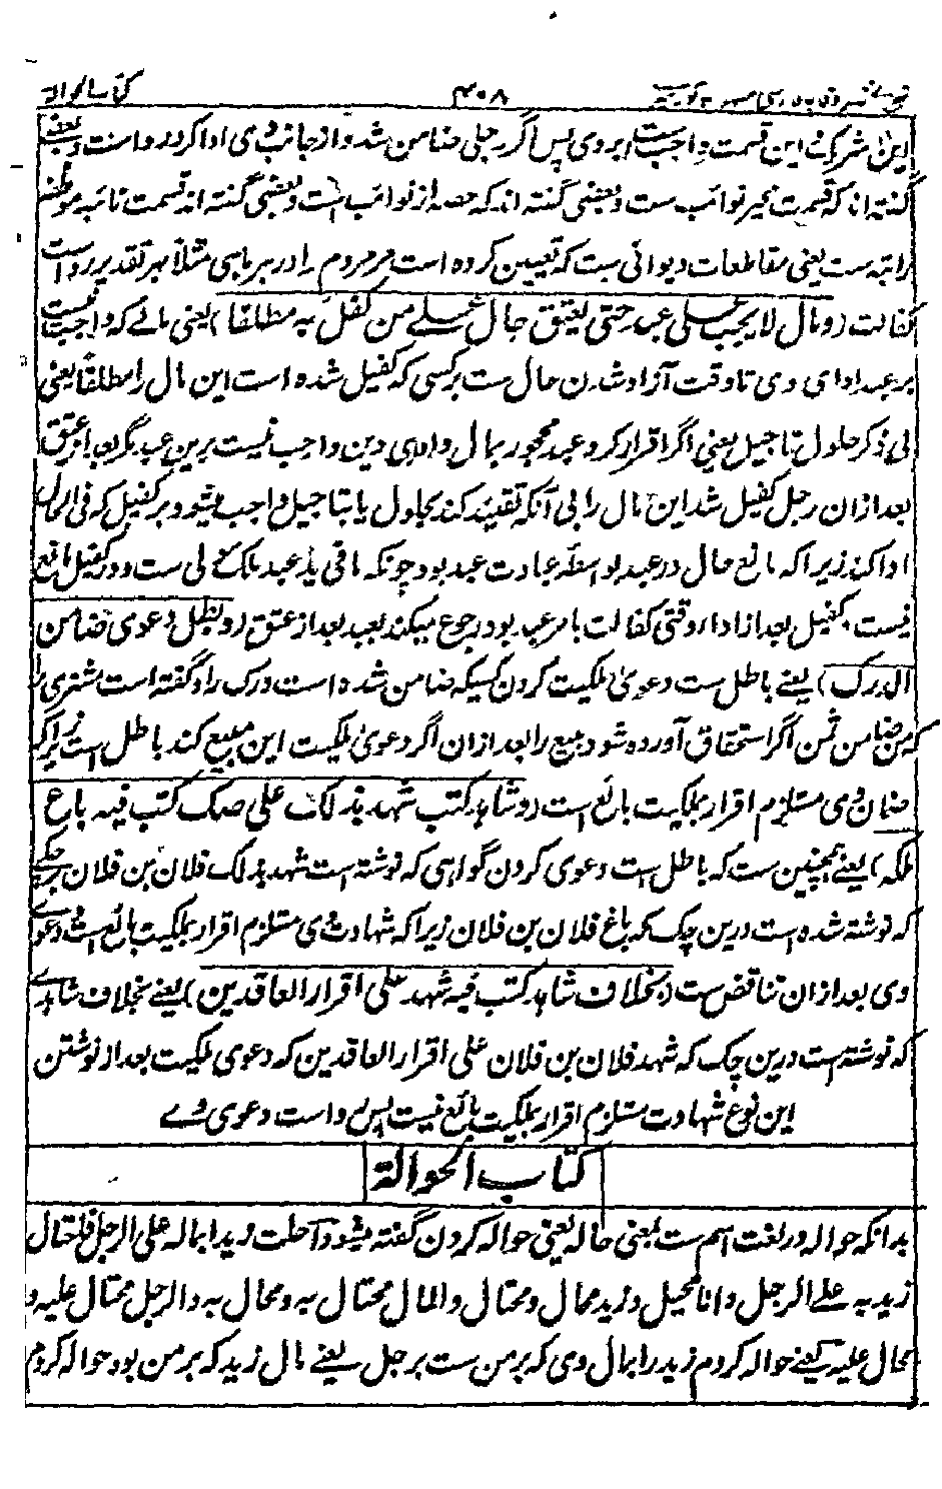 کتاب الحوالة ۴۰۸
این شرکت این قسمت واجب ست بروی پس اگر رجلی ضامن شد و از جانب وی ادا کرد رواست و بعضے
گفته اند که قسمت نوائب ست و بعضی گفته اند که حصه از نوائب ست و بعضی گفته اند قسمت نائبه موظفه
راتبه ست یعنی مقاطعات دیوانی ست که تعیین کرده است بر مردم را در هر ماهی مثلا بهر تقدیر رواست
کفالت (و مال لا یجب علی عبد حتی یعتق حال علے من کفل به مطلقا) یعنی مالے که واجب نیست
بر عبد ادای وی تا وقت آزاد شدن حال ست بر کسی که کفیل شده است این مال را مطلقا یعنی
بی ذکر حلول تاجیل یعنی اگر اقرار کرد عبد محجور بمال و ادای دین واجب نیست برین عبد مگر بعد از عتق
بعد ازان رجل کفیل شد این مال را بی آنکه تقیید کند بحلول یا بتاجیل واجب میشود بر کفیل که فی الحال
ادا کند زیرا که مانع حال در عبد بواسطه عبد بود چونکه ما فی ید عبد ملک مولی ست و در کفیل مانع
نیست کفیل بعد از ادا وقتی کفالت بامر عبد بود رجوع میکند بعبد بعد از عتق (و بطل دعوی ضامن
الدرک) یعنے باطل ست دعوی ملکیت کردن کسیکه ضامن شده است درک را و گفته است مشتری را
که من ضامن ثمن اگر استحقاق آورده شود مبیع را بعد ازان اگر دعوی ملکیت این مبیع کند باطل است زیرا که
ضمان وی مستلزم اقرار بملکیت بائع است (و شاهد کتب شهد بذلک علی صک کتب فیه باع
ملکه) یعنے همچنین ست که باطل ست دعوی کردن گواهی که نوشته است شهد بذلک فلان بن فلان بر چکے
که نوشته شده است درین چک که باع فلان بن فلان زیرا که شهادت وی مستلزم اقرار بملکیت بائع است و دعوی
وی بعد ازان تناقض ست (بخلاف شاهد کتب فیه شهد علی اقرار العاقدین) یعنے بخلاف شاهدے
که نوشته است درین چک که شهد فلان بن فلان علی اقرار العاقدین که دعوی ملکیت بعد از نوشتن
این نوع شهادت مستلزم اقرار بملکیت بائع نیست پس رواست دعوی وے
کتاب الحوالة
بدانکه حواله در لغت اسم ست بمعنی احاله یعنی حواله کردن گفته میشود احلت زیدا بماله علی الرجل فاحتال
زید به علے الرجل و انا محیل و زید محال و محتال و المال محتال به و محال به و الرجل محتال علیه و
محال علیه یعنے حواله کردم زید را بمال وی که بر من ست بر رجل یعنے مال زید که بر من بود حواله کردم